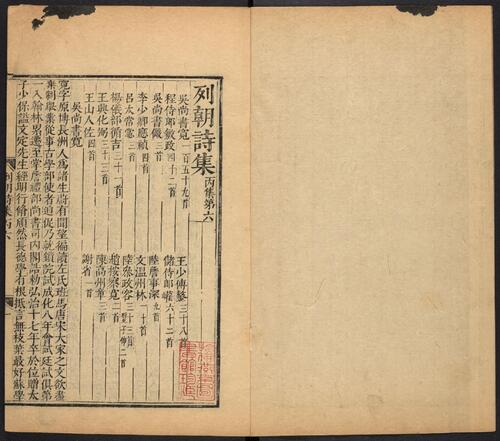 列朝詩集 丙集第六
吳尚書寬一百五十九首
程侍郎敏政四十二首
吳尚書儼三首
李少卿應禎四首
呂太常㦂三首
楊儀部循吉三十一首
王興化弼三十三首
王山人佐四首
王少傅鏊三十八首
儲侍郎巏六十二首
陸詹事深九首
文溫州林十首
陸參政容三十三首
趙按察寬二首
陳高州章三首
謝省一首
吳尚書寬
寬字原博長洲人為諸生蔚有聞望徧讀左氏班馬唐宋大家之文欲盡
棄制舉業從事古學部使者迫促乃就鎖院試成化八年會試廷試俱第
一入翰林累遷至掌詹禮部尚書司內閣誥勅弘治十七年卒於位贈太
子少保諡文定先生經明行脩頎然長德學有根抵言無枝葉最好蘇學
列朝詩集丙六